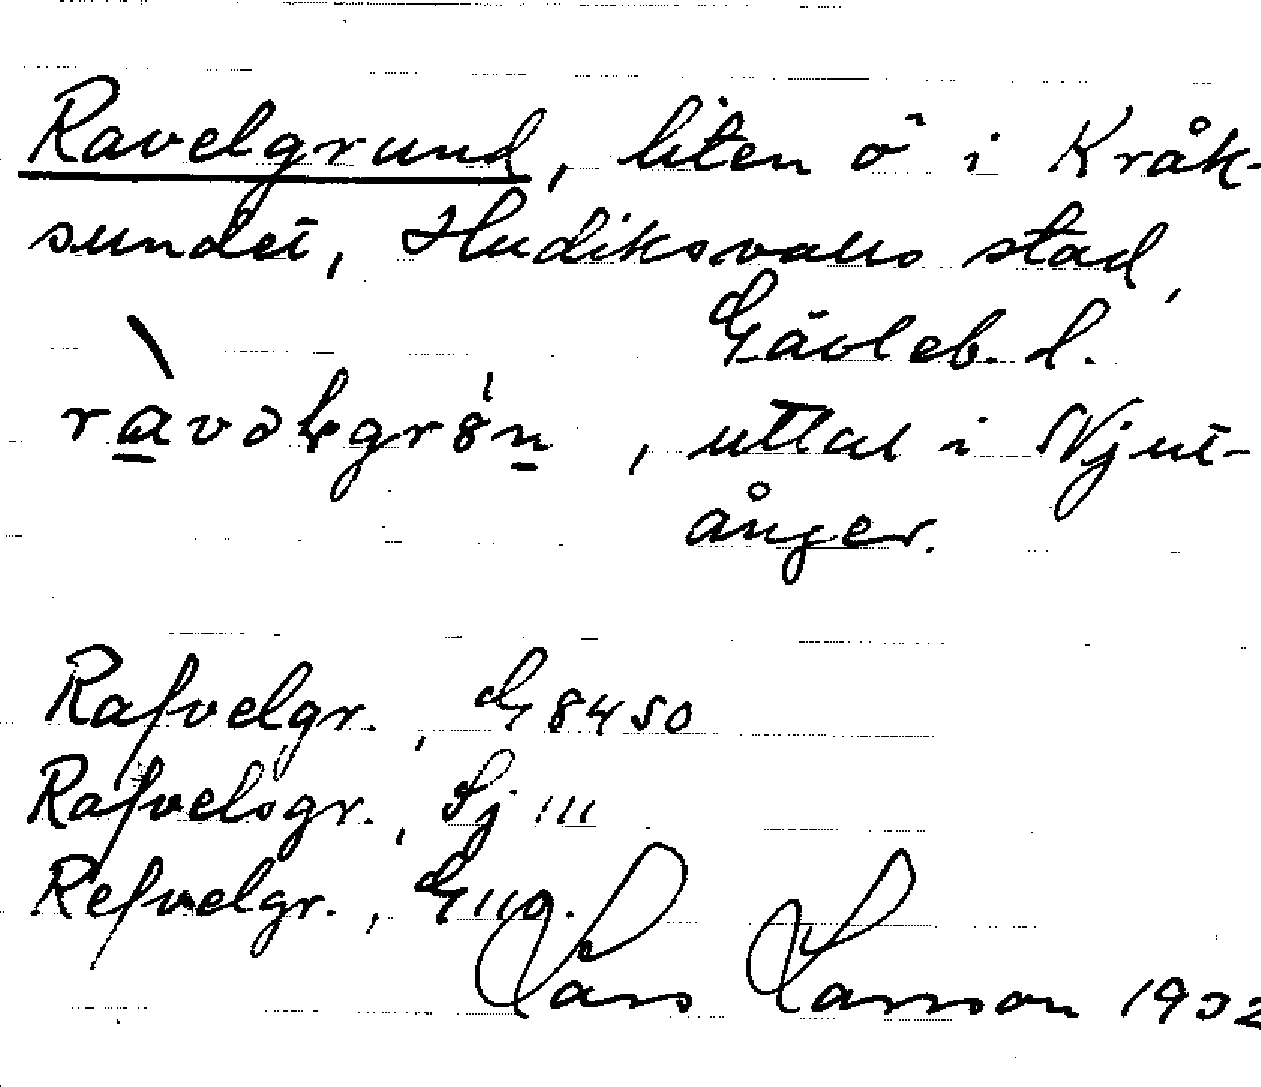 Ravelgrund, liten ö i Kråk-
sundet, Hudiksvalls stad,
Gävleb. l.
ravəlgrøn, uttal i Njut-
ånger.
Rafvelgr., G 8450
Rafvelsgr., Sj 111
Refvelgr., G 110.
Lars Larsson 1932